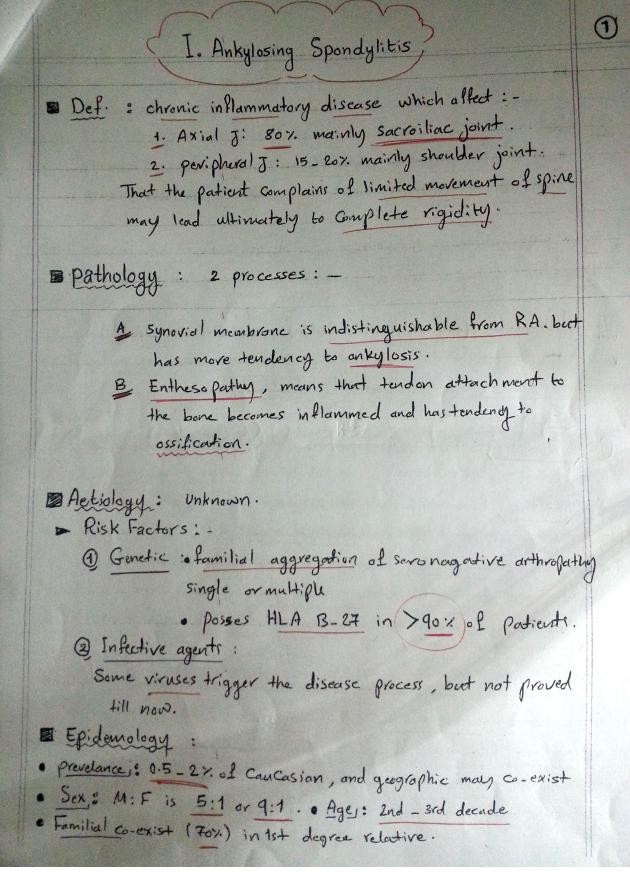 1
I. Ankylosing Spondylitis
Def. : chronic inflammatory disease which affect :-
1. Axial J: 80% mainly sacroiliac joint.
2. peripheral J: 15-20% mainly shoulder joint.
That the patient complains of limited movement of spine
may lead ultimately to complete rigidity.
Pathology : 2 processes : -
A synovial membrane is indistinguishable from RA. but
has more tendency to ankylosis.
B Enthesopathy, means that tendon attachment to
the bone becomes inflammed and has tendency to
ossification.
Aetiology : unknown.
► Risk Factors : -
① Genetic : • familial aggregation of seronagative arthropathy
single or multiple
• Posses HLA B-27 in >90% of patients.
② Infective agents :
Some viruses trigger the disease process, but not proved
till now.
Epidemology :
• Prevelance : 0.5-2% of Caucasian, and geographic may co-exist
• Sex : M:F is 5:1 or 9:1. • Age : 2nd - 3rd decade
• Familial co-exist (70%) in 1st degree relative.